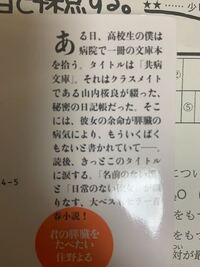 自己採点する。
★★
ある日、高校生の僕は
病院で一冊の文庫本
を拾う。タイトルは「共病
文庫」。それはクラスメイト
である山内桜良が綴った、
秘密の日記帳だった。そこ
には、彼女の余命が膵臓の
病気により、もういくばく
もないと書かれていて――。
読後、きっとこのタイトル
に涙する。「名前のない僕」
と「日常のない彼女」が織
りなす、大ベストセラー青
春小説！
君の膵臓を
たべたい
住野よる
4-5
⑤
につい
をも